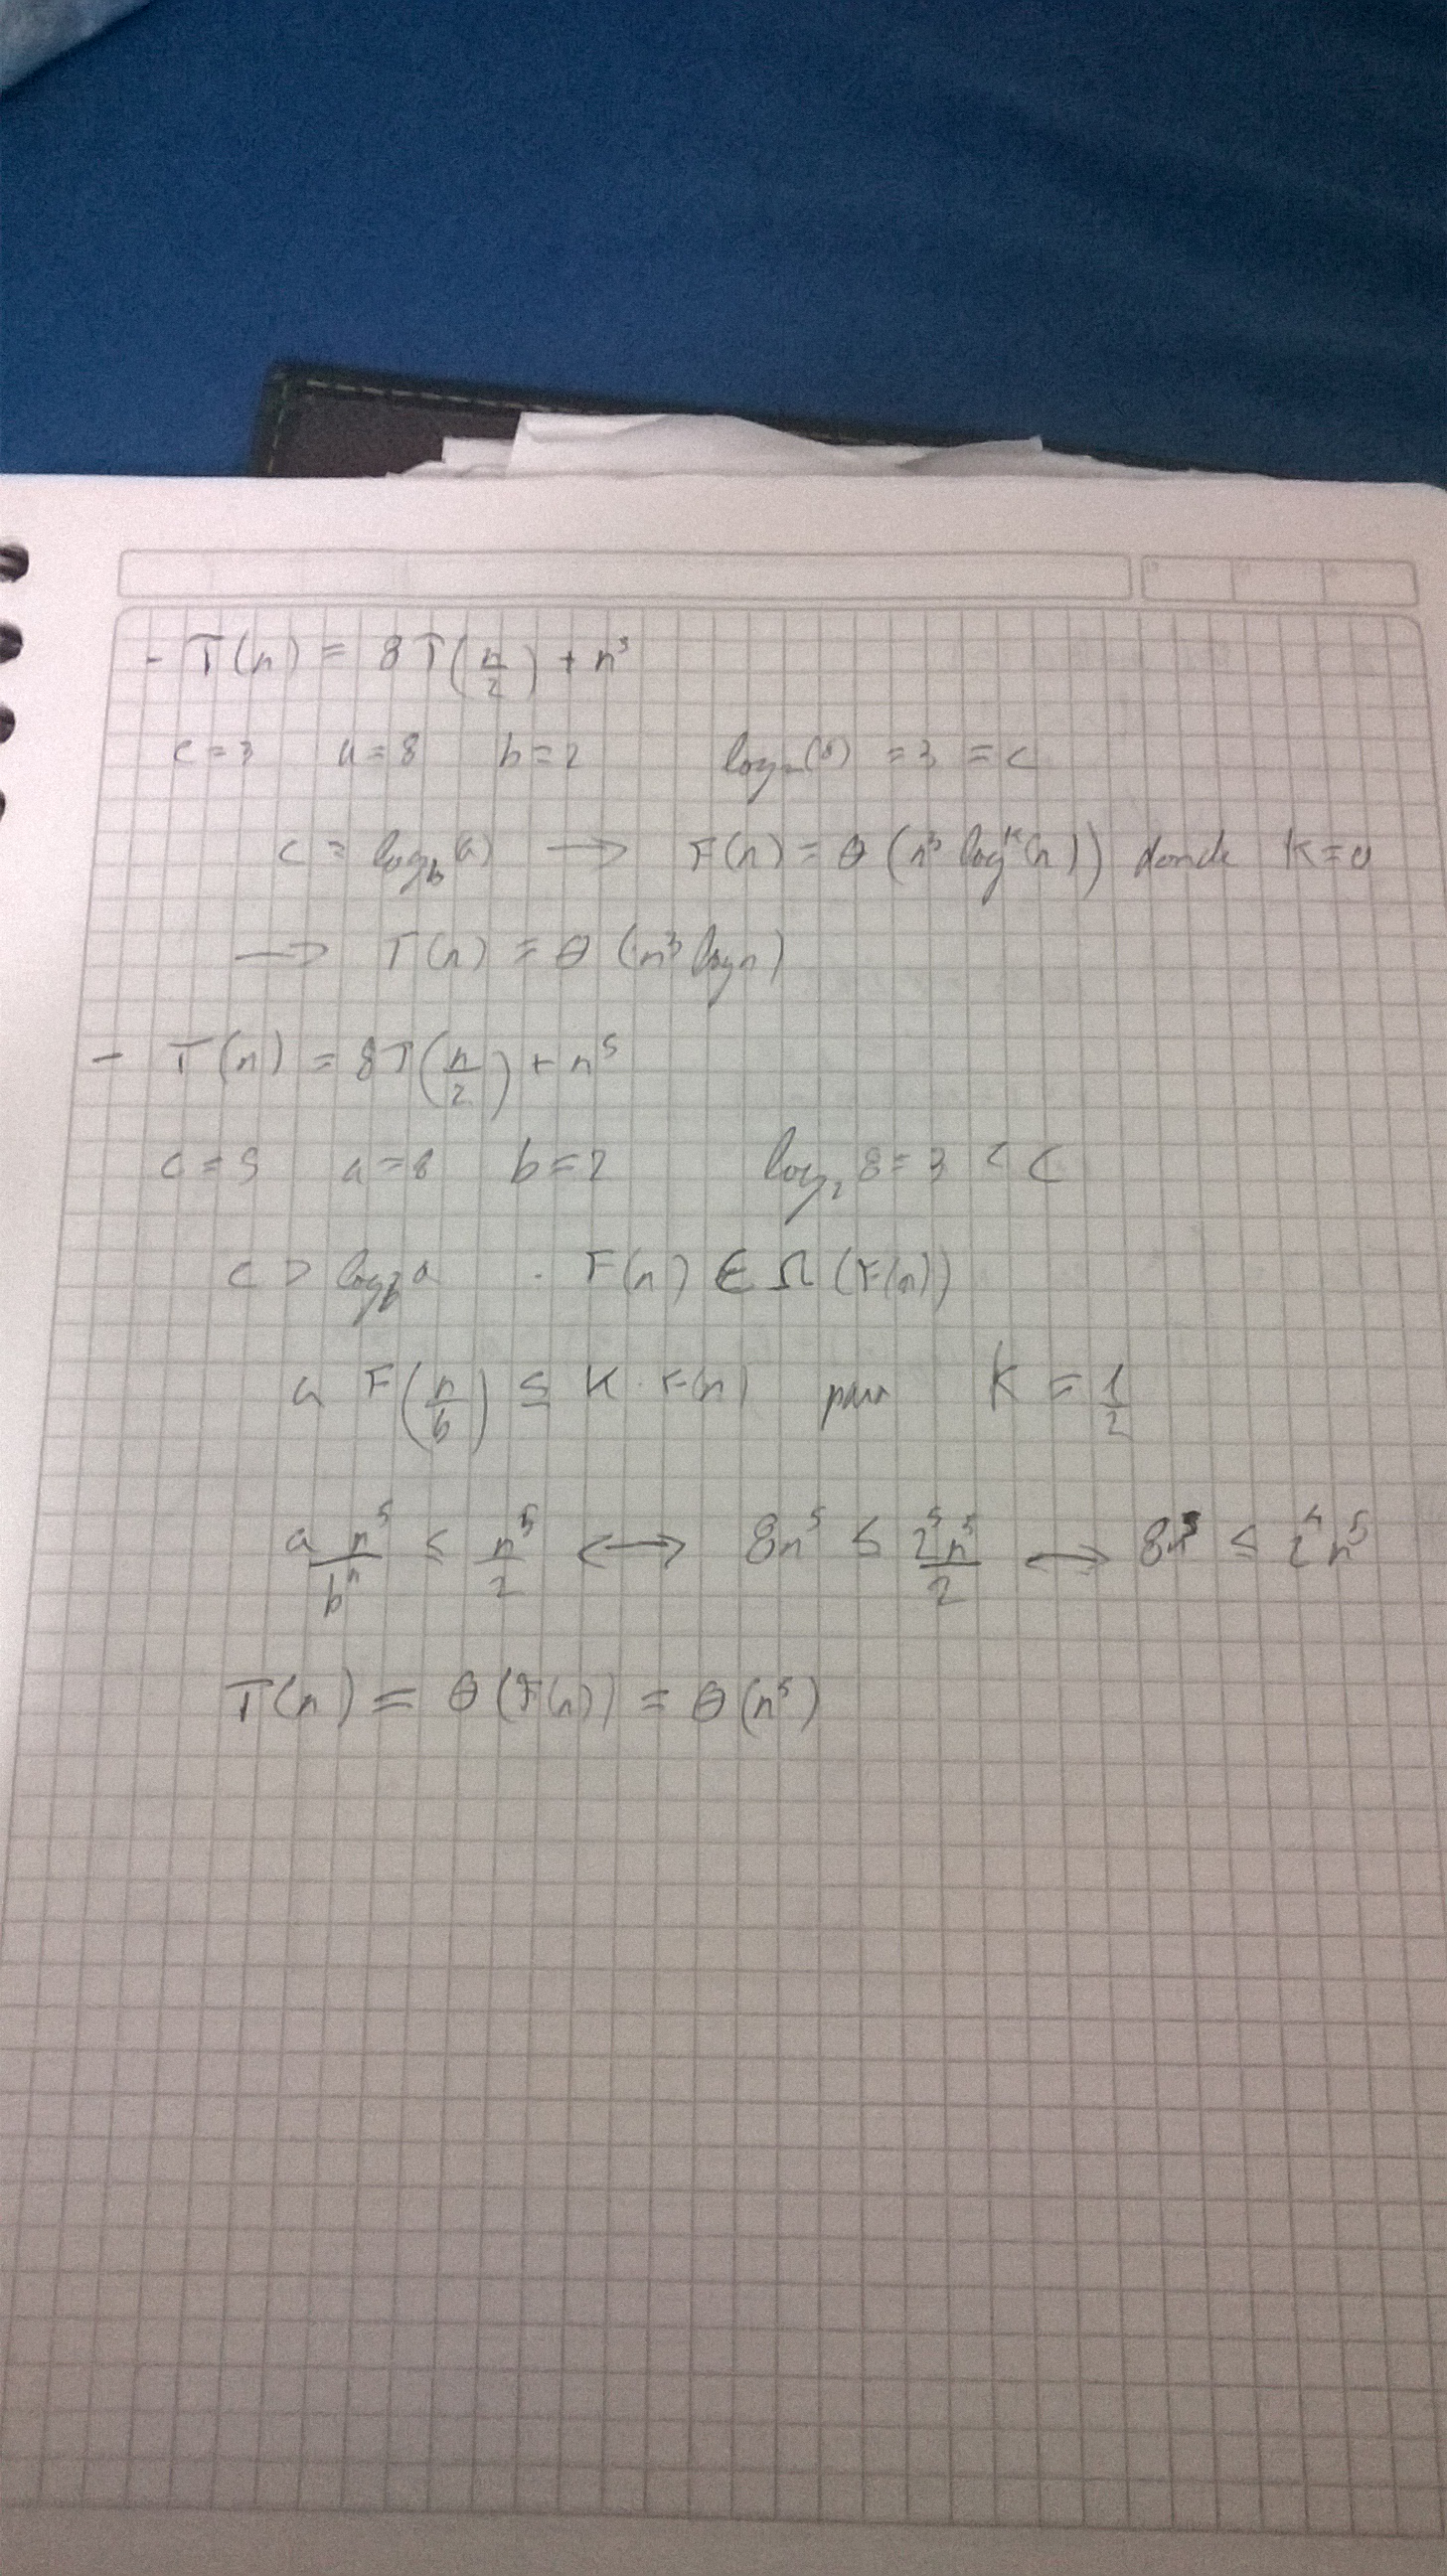 - T(n) = 8T(n/2) + n³
c=3 a=8 b=2 log₂(8) = 3 = c
c = log_b(a) → F(n) = θ(n³ log^k(n)) donde k=0
→ T(n) = θ(n³ log n)
- T(n) = 8T(n/2) + n⁵
c=5 a=8 b=2 log₂ 8 = 3 < c
c > log_b a . F(n) ∈ Ω(F(n))
a F(n/b) ≤ K · F(n) para K = 1/2
a n⁵/bⁿ ≤ n⁵/2 ↔ 8n⁵ ≤ 2⁵n⁵/2 ↔ 8n⁵ ≤ 2⁴n⁵
T(n) = θ(F(n)) = θ(n⁵)